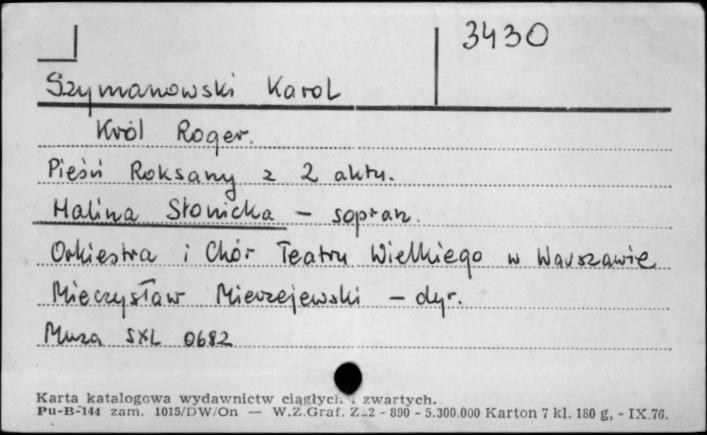 3430
Szymanowski Karol
Król Roger.
Pieśń Roksany z 2 aktu.
Halina Słonicka – sopran.
Orkiestra i Chór Teatru Wielkiego w Warszawie
Mieczysław Mierzejewski – dyr.
Muza SXL 0682
Karta katalogowa wydawnictw ciągłych i zwartych.
Pu-B-144 zam. 1015/DW/On — W.Z.Graf. Z-2 - 890 - 5.300.000 Karton 7 kl. 180 g, - IX.76.